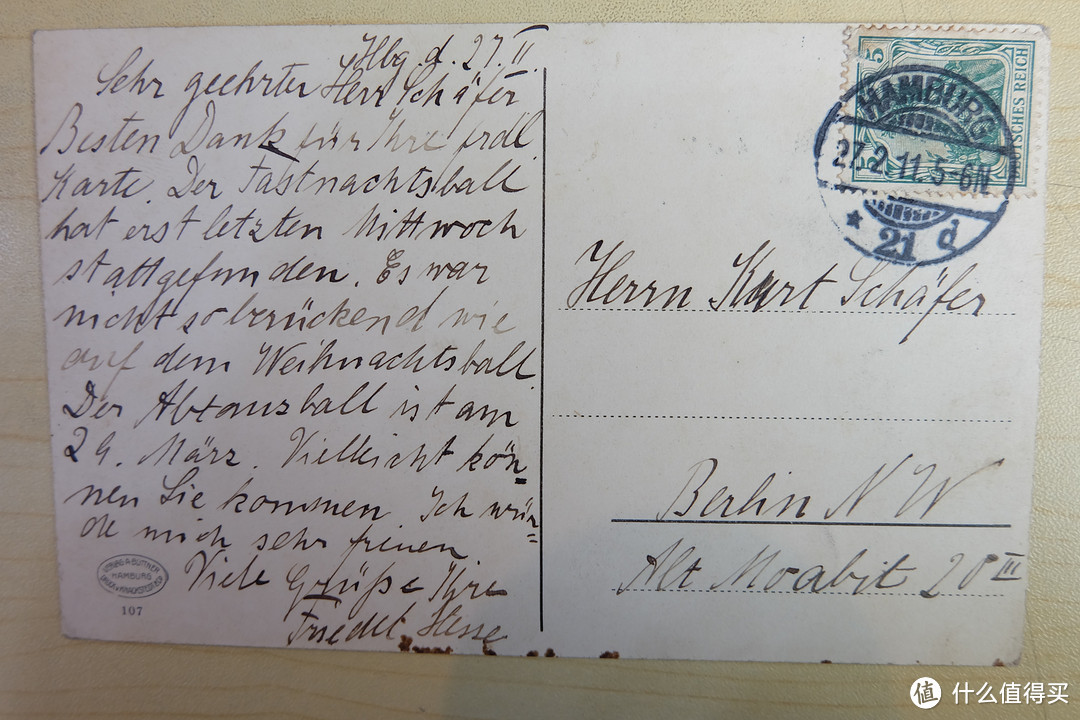 Hbg. d. 27. II.
Sehr geehrter Herr Schäfer
Besten Dank für Ihre frdl.
Karte. Der Fastnachtsball
hat erst letzten Mittwoch
stattgefunden. Es war
nicht so berückend wie
auf dem Weihnachtsball.
Der Abtanzball ist am
29. März. Vielleicht kön=
nen Sie kommen. Ich wür=
de mich sehr freuen.
Viele Grüße Ihre
Friedel Hesse
VERLAG A. BÜTTNER
HAMBURG
107
5
DEUTSCHES REICH
HAMBURG
27.2.11.5-6N
* 21 d
Herrn Kurt Schäfer
Berlin N W
Alt Moabit 20 III
值 什么值得买